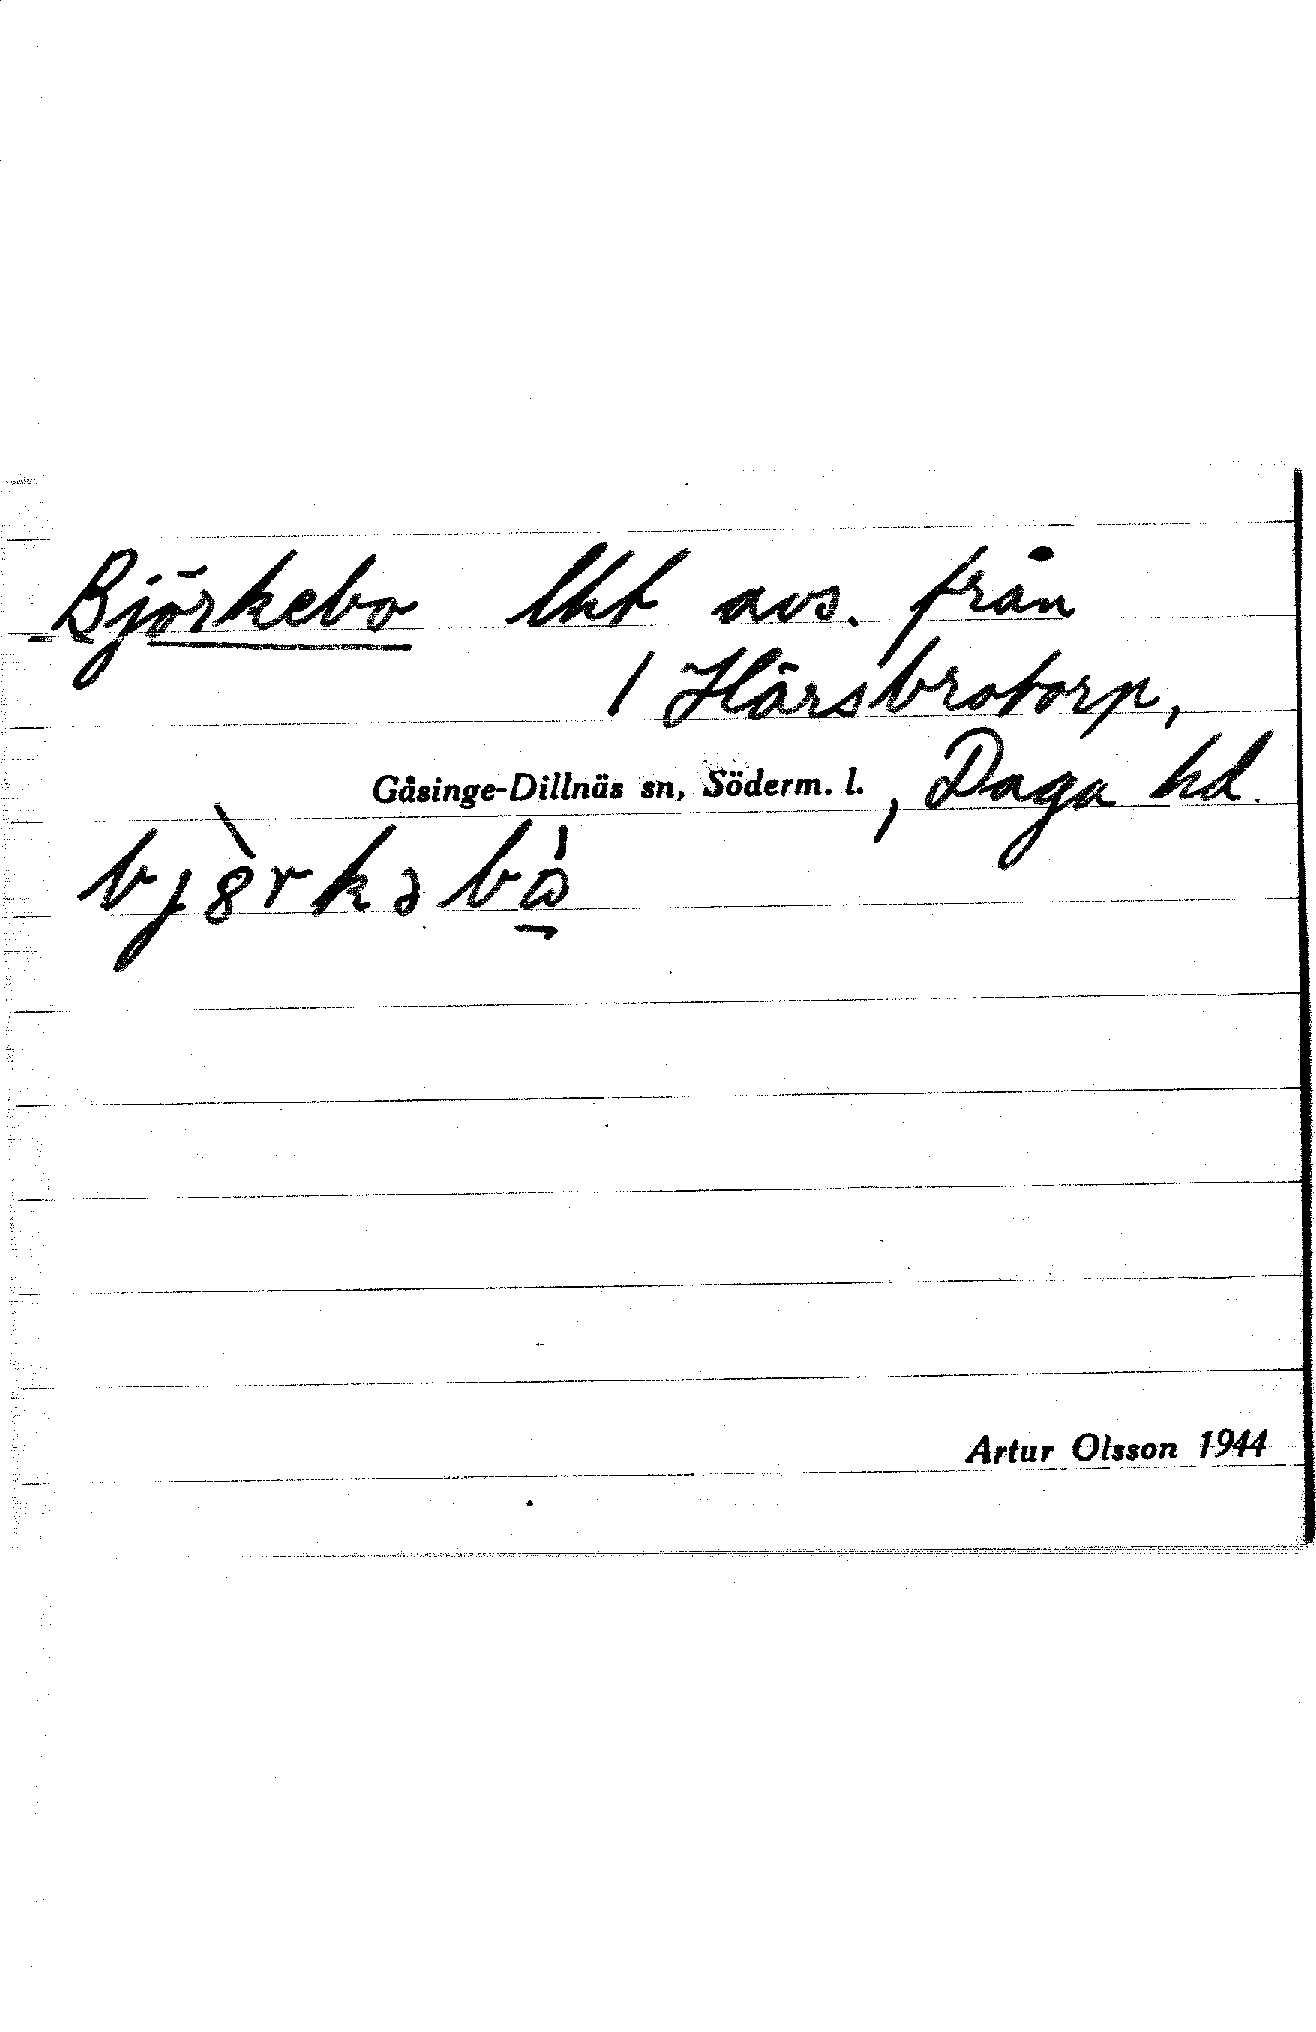 Björkebo lht avs. från
1 Härsbrotorp,
Gåsinge-Dillnäs sn, Söderm. l., Daga hd.
Artur Olsson 1944